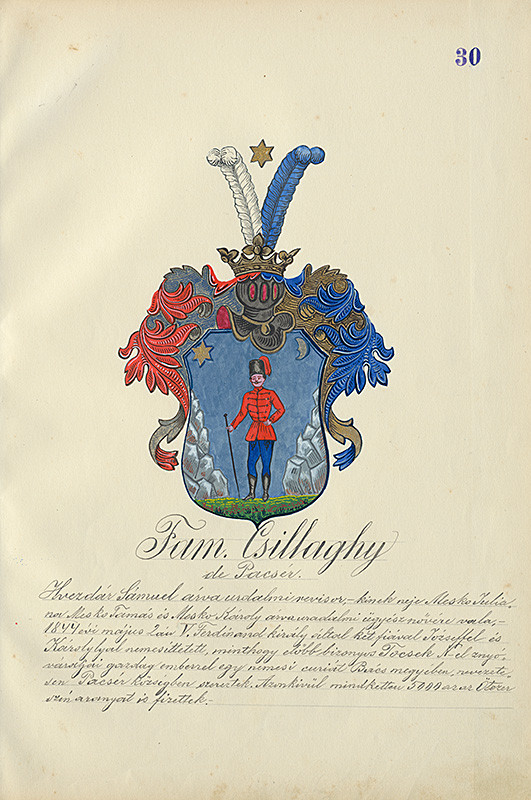 30
Fam. Csillaghy
de Pacsér.
Hvezdár Sámuel árva uradalmi revisor, – kinek neje Mesko Julia-
na Mesko Tamás és Mesko Károly árva uradalmi ügyész nővére vala, –
1844 évi május 2án V. Ferdinand király által két fiával Józseffel és
Károlylyal nemesittetett, minthogy előbb bizonyos Tocsek N-el
gazdag emberrel egy nemesi curiát Bács megyében, nevezete-
sen Pacsér községben szereztek. Azonkivül mindketten 5000 azaz Ötezer
aranyat is fizettek. –